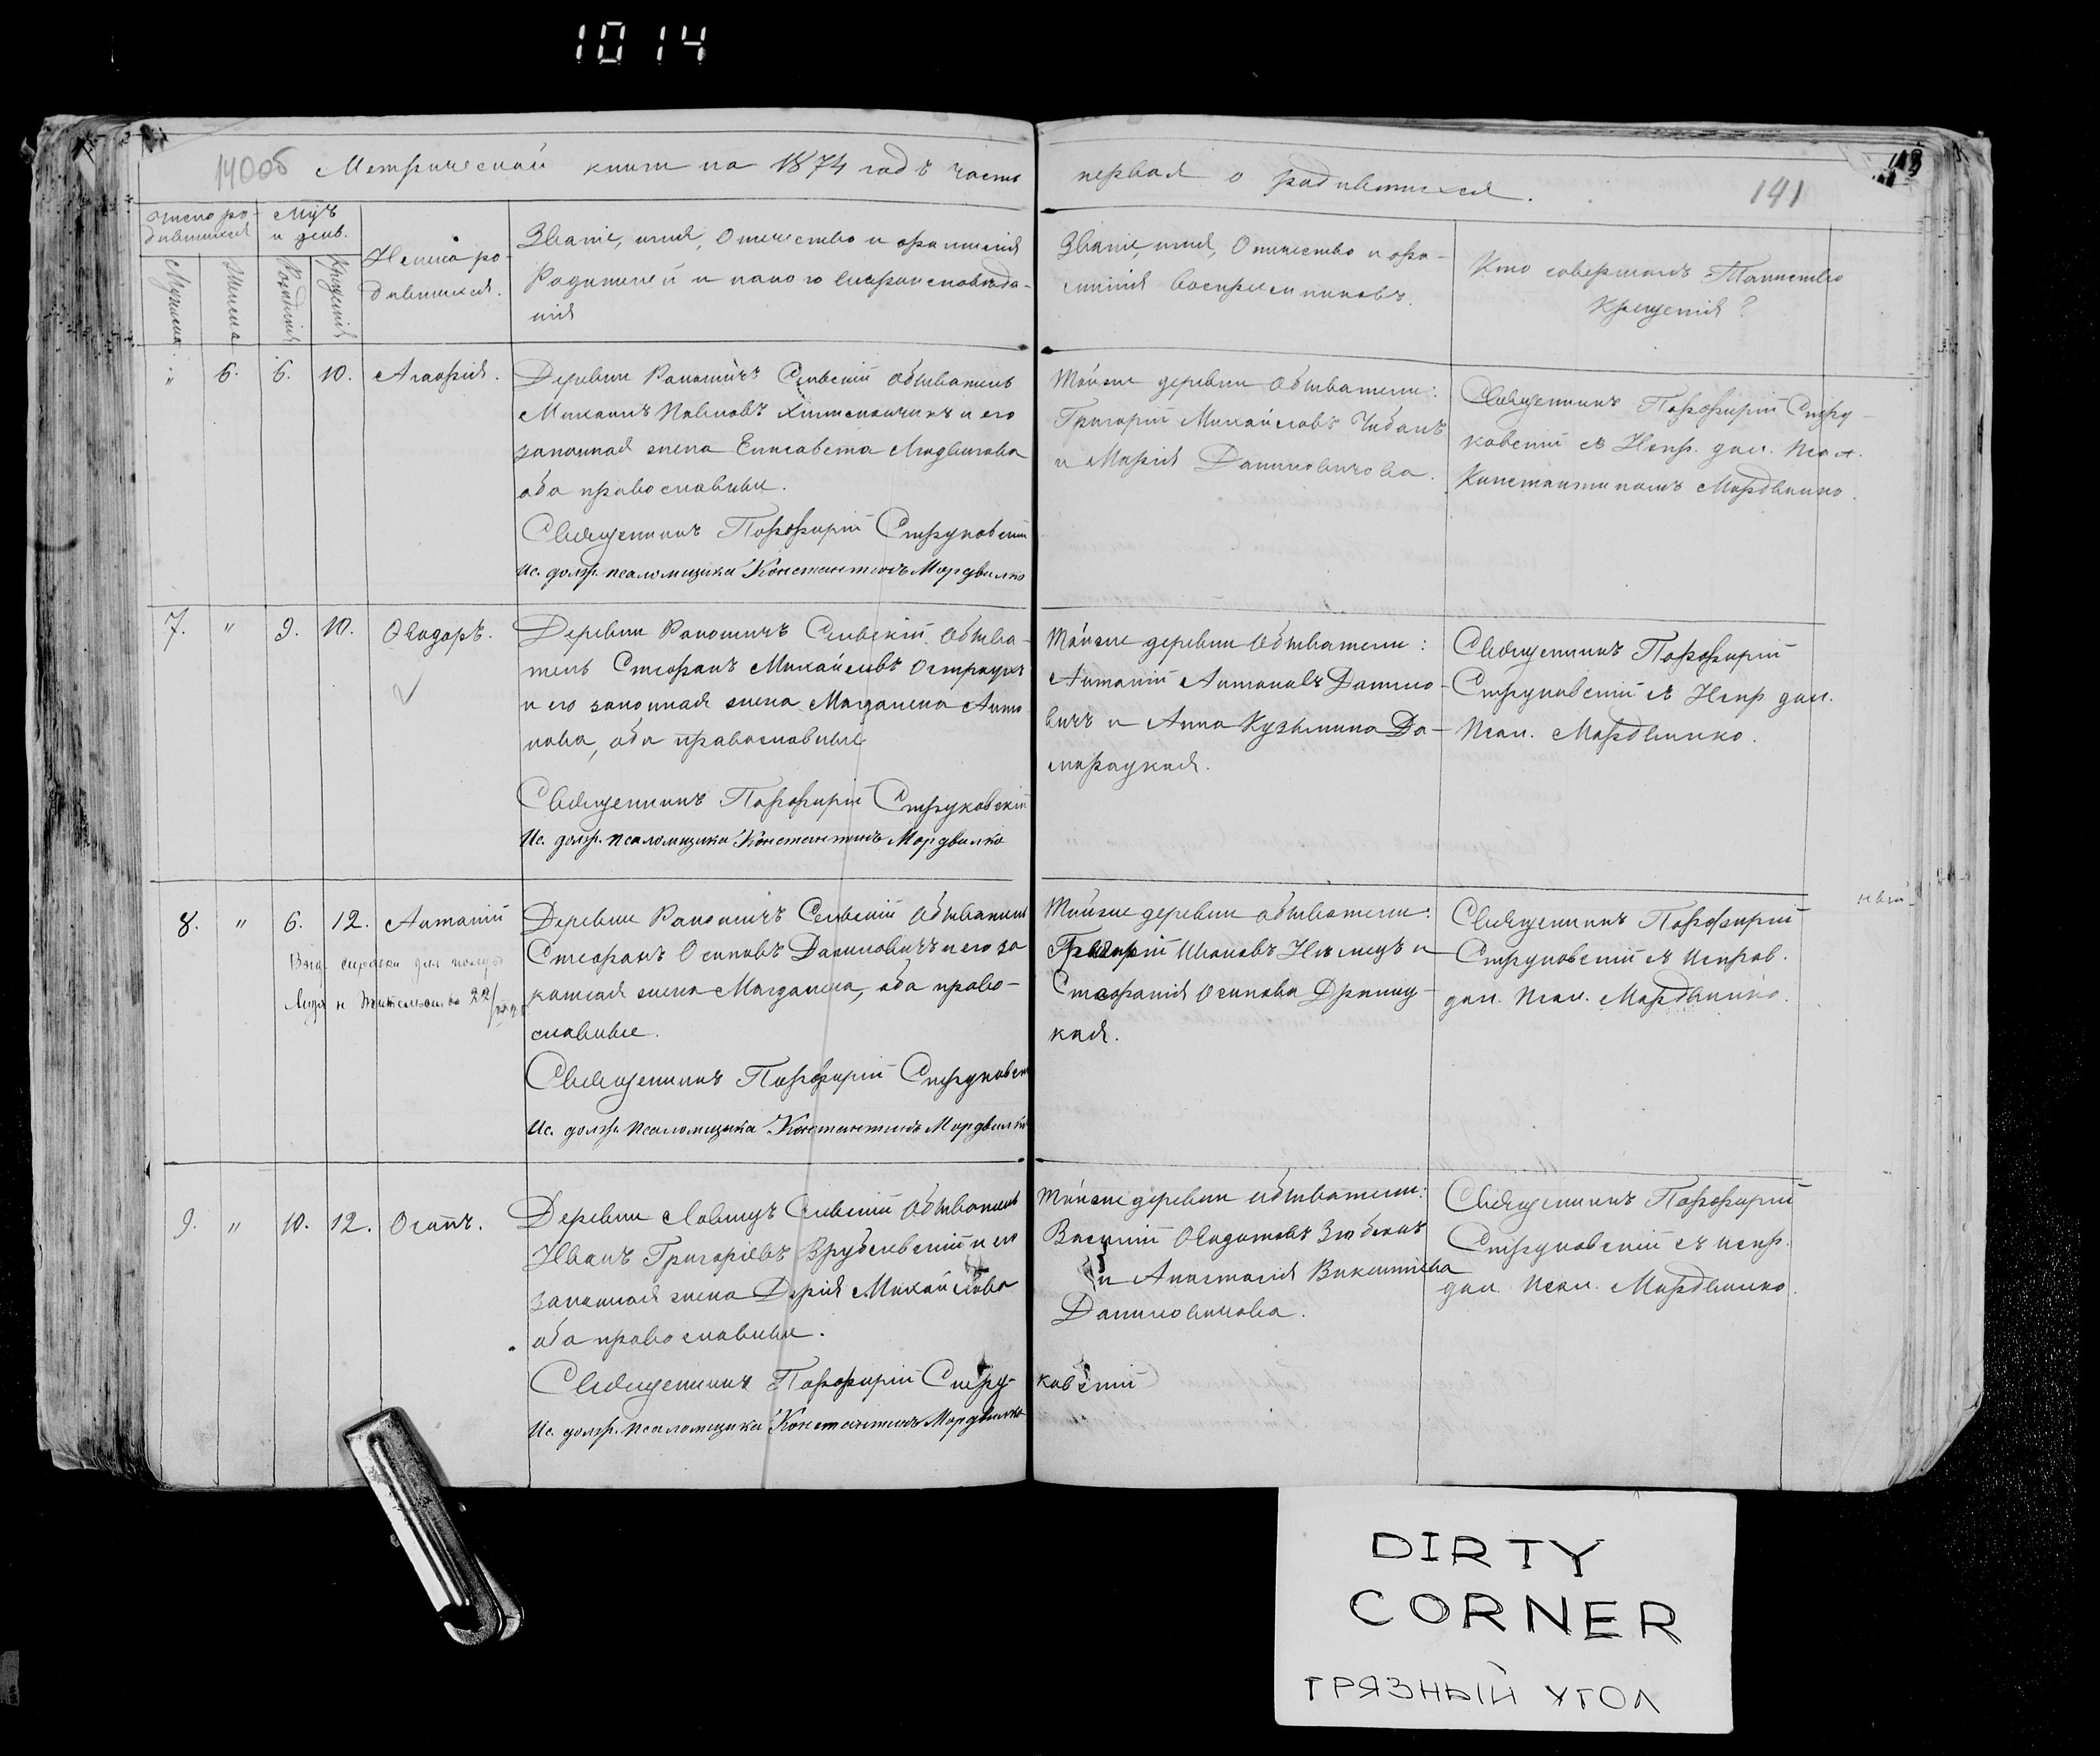 1014
140об Метрической книги на 1874 годъ часть
первая о родившихся.
141
Число ро-
дившихся
Мц-ъ
и день.
Мужеска
Женска
Рожденія
Крещенія
Имена ро-
дившихся.
Званіе, имя, Отчество и фамилія
Родителей и какого вѣроисповѣда-
нія
Званіе, имя, Отчество и фа-
милія воспріемниковъ.
Кто совершалъ Таинство
Крещенія?
" 6. 6. 10. Агафія.
Деревни Рапошичъ Сельскій обыватель
Михаилъ Павловъ и его
законная жена Елисавета Людвигова
оба православные.
Священникъ Порфирій Струковскій
Ис. долж. псаломщика Константинъ Мордвилко
Тойже деревни обыватели:
Григорій Михайловъ Чубакъ
и Марія Даниловичова.
Священникъ Порфирій Стру-
ковскій съ Испр. дол. Псал.
Константиномъ Мордвилко.
7. " 9. 10. Ѳеодоръ.
Деревни Рапошичъ Сельскій Обыва-
тель Стефанъ Михайловъ
и его законная жена Магдалена Анто-
нова, оба православные
Священникъ Порфирій Струковскій
Ис. долж. псаломщика Константинъ Мордвилко
Тойже деревни Обыватели:
Антоній Антоновъ Данило-
вичъ и Анна Кузьмина До-
морацкая.
Священникъ Порфирій
Струковскій съ Испр дол.
Псал. Мордвилко.
8. " 6. 12. Антоній
Выд. справка для
22/
Деревни Рапошичъ Сельскій Обыватель
Стефанъ Осиповъ Даниловичъ и его за
конная жена Магдалена, оба право-
славные.
Священникъ Порфирій Струковскій
Ис. долж. псаломщика Константинъ Мордвилко
Тойже деревни обыватели:
Григорій Ивановъ Нѣмецъ и
Стефанія Осипова
кая.
Священникъ Порфирій
Струковскій съ Исправ.
дол. Псал. Мордвилко.
ный
9. " 10. 12. Осипъ.
Деревни Ловцуъ Сельскій Обыватель
Иванъ Григоріевъ Врублевскій и его
законная жена Дарія Михайлова
оба православные.
Священникъ Порфирій Стру-
ковскій
Ис. долж. псаломщика Константинъ Мордвилко
Тойже деревни обыватели:
Василій
и Анастасія Викентіева
Даниловичова.
Священникъ Порфирій
Струковскій съ испр.
дол. Псал. Мордвилко.
DIRTY
CORNER
ГРЯЗНЫЙ УГОЛ